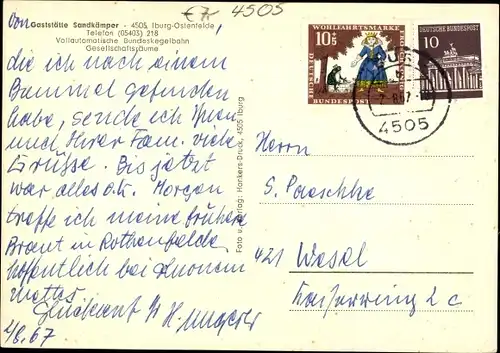 €7,- 4505
Von Gaststätte Sandkämper - 4505 Iburg-Ostenfelde
Telefon (05403) 218
Vollautomatische Bundeskegelbahn
Gesellschaftsräume
die ich nach einem
Bummel gefunden
habe, sende ich Ihnen
und Ihrer Fam. viele
Grüsse. Bis jetzt
war alles o.k. Morgen
treffe ich meine frühere
Braut in Rothenfelde,
hoffentlich bei
Wetter
2/8.67
Foto u. Verlag: Hankers-Druck, 4505 Iburg
WOHLFAHRTSMARKE
10+5
DEUTSCHE BUNDESPOST
DEUTSCHE BUNDESPOST
10
4505
Herrn
S. Paschke
421 Wesel
Kaiserring 2c